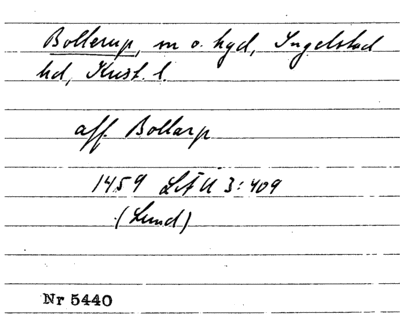 Bollerup, m o. hgd, Ingelstad
hd, Krist. l
aff Bollarp
1459 LÄU 3:409
(Lund)
Nr 5440